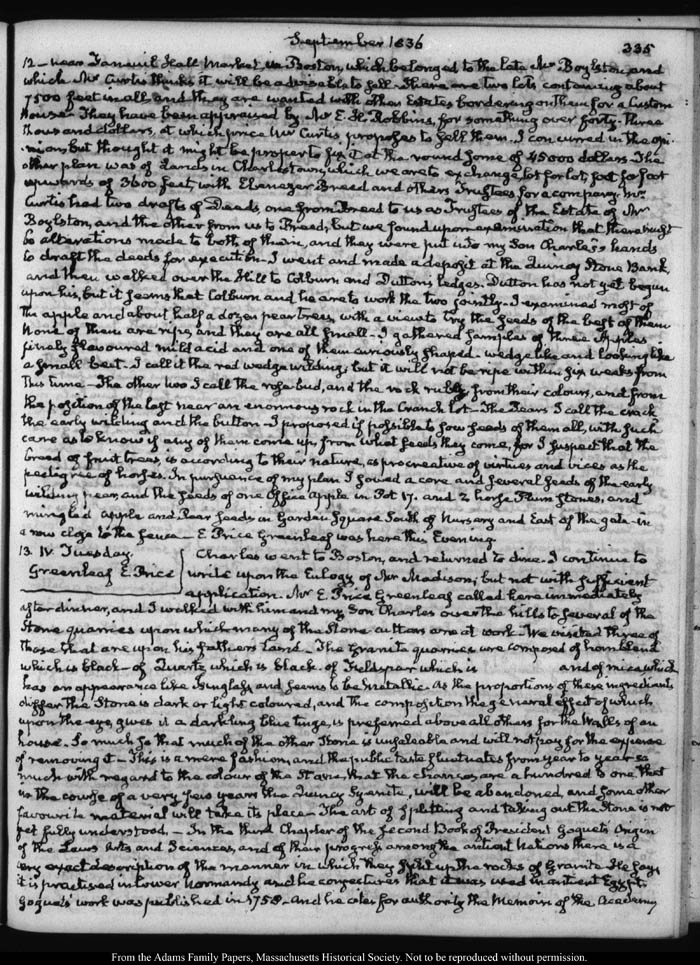 September 1836
335
12 — near Faneuil Hall Market, in Boston, which belonged to the late Mr. Boylston, and
which Mr Curtis thinks it will be advisable to sell. There are two lots containing about
7500 feet in all, and they are wanted with other Estates bordering on them for a Custom
House. They have been appraised by Mr E. H. Robbins, for something over forty-three
thousand dollars, at which price Mr Curtis, proposes to sell them. I concurred in the opi-
nion, but thought it might be proper to fix it at the round some of 45000 dollars. The
other plan was of Lands in Charlestown, which we are to exchange lot for lot, foot for foot
upwards of 3600 feet, with Ebenezer Breed and others Trustees for a company. Mr
Curtis had two drafts of Deeds, one from Breed to us as Trustees of the Estate of Mr
Boylston, and the other from us to Breed, but we found upon examination that there must
be alterations made to both of them, and they were put into my Son Charles's hands
to draft the deeds for execution. I went and made a deposit at the Quincy Stone Bank,
and then walked over the Hill to Colburn and Dutton's ledges. Dutton has not yet begun
upon his, but it seems that Colburn and he are to work the two jointly. I examined most of
the apple and about half a dozen pear trees, with a view to try the seeds of the best of them
None of them are ripe, and they are all small. I gathered samples of three Apples
finely flavoured mild acid and one of them curiously shaped - wedge like and looking like
a small beet. I call it the red wedge wilding; but it will not be ripe within six weeks from
this time — The other two I call the rose-bud, and the rock ruby from their colours, and from
the position of the last near an enormous rock in the Cranch lot — The Pears I call the crack
the early wilding and the button - I proposed if possible to sow seeds of them all, with such
care as to know if any of them come up, from what seeds they come, for I suspect that the
breed of fruit trees, is according to their nature, as procreative of virtues and vices as the
pedigree of horses. In pursuance of my plan I sowed a core and several seeds of the early
wilding pear, and the seeds of one Office apple in Pot 17. and 2 horse Plum stones, and
mingled apple and Pear seeds in Garden Square South of Nursery and East of the gate - in
a row close to the fence — E Price Greenleaf was here this Evening.
13. IV. Tuesday.
Greenleaf E. Price
Charles went to Boston, and returned to dine. I continue to
write upon the Eulogy of Mr Madison; but not with sufficient
application. Mr E. Price Greenleaf called here immediately
after dinner, and I walked with him and my Son Charles over the hills to several of the
Stone quarries upon which many of the Stone cutters are at work. We visited three of
those that are upon his father's Land. The Granite quarries are composed of hornblend
which is black - of Quartz which is black. of Feldspar which is
and of mica which
has an appearance like Isinglass, and seems to be metallic. As the proportions of these ingredients
differ the Stone is dark or light coloured, and the composition the general effect of which
upon the eye, gives it a darkling blue tinge, is preferred above all others for the Walls of an
house. So much so that much of the other Stone is unsaleable and will not pay for the expense
of removing it — This is a mere fashion, and the public taste fluctuates from year to year so
much with regard to the colour of the Stone, that the chances are a hundred to one, that
in the course of a very few years the Quincy Syenite, will be abandoned, and some other
favourite material will take its place. The art of splitting and taking out the Stone is not
yet fully understood. — In the third Chapter of the second Book of President Goguet's Origin
of the Laws Arts and Sciences, and of their progress among the antient Nations there is a
very exact description of the manner in which they split up the rocks of Granite. He says
it is practised in Lower Normandy and he conjectures that it was used in antient Egypt.
Goguet's work was published in 1758 - and he cites for authority the Memoirs of the Academy
From the Adams Family Papers, Massachusetts Historical Society. Not to be reproduced without permission.